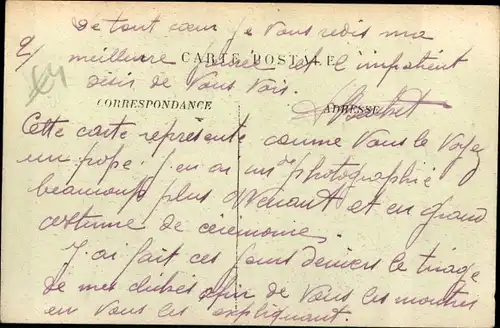 De tout cœur je vous redis ma
2/
meilleure et l'impatient
CARTE POSTALE
désir de vous voir.
CORRESPONDANCE
ADRESSE
Cette carte représente comme vous le voyez
un pope. j'en ai un photographié
beaucoup plus et en grand
costume de cérémonie.
J'ai fait ces jours derniers le triage
de mes clichés afin de vous les montrer
en vous les expliquant.